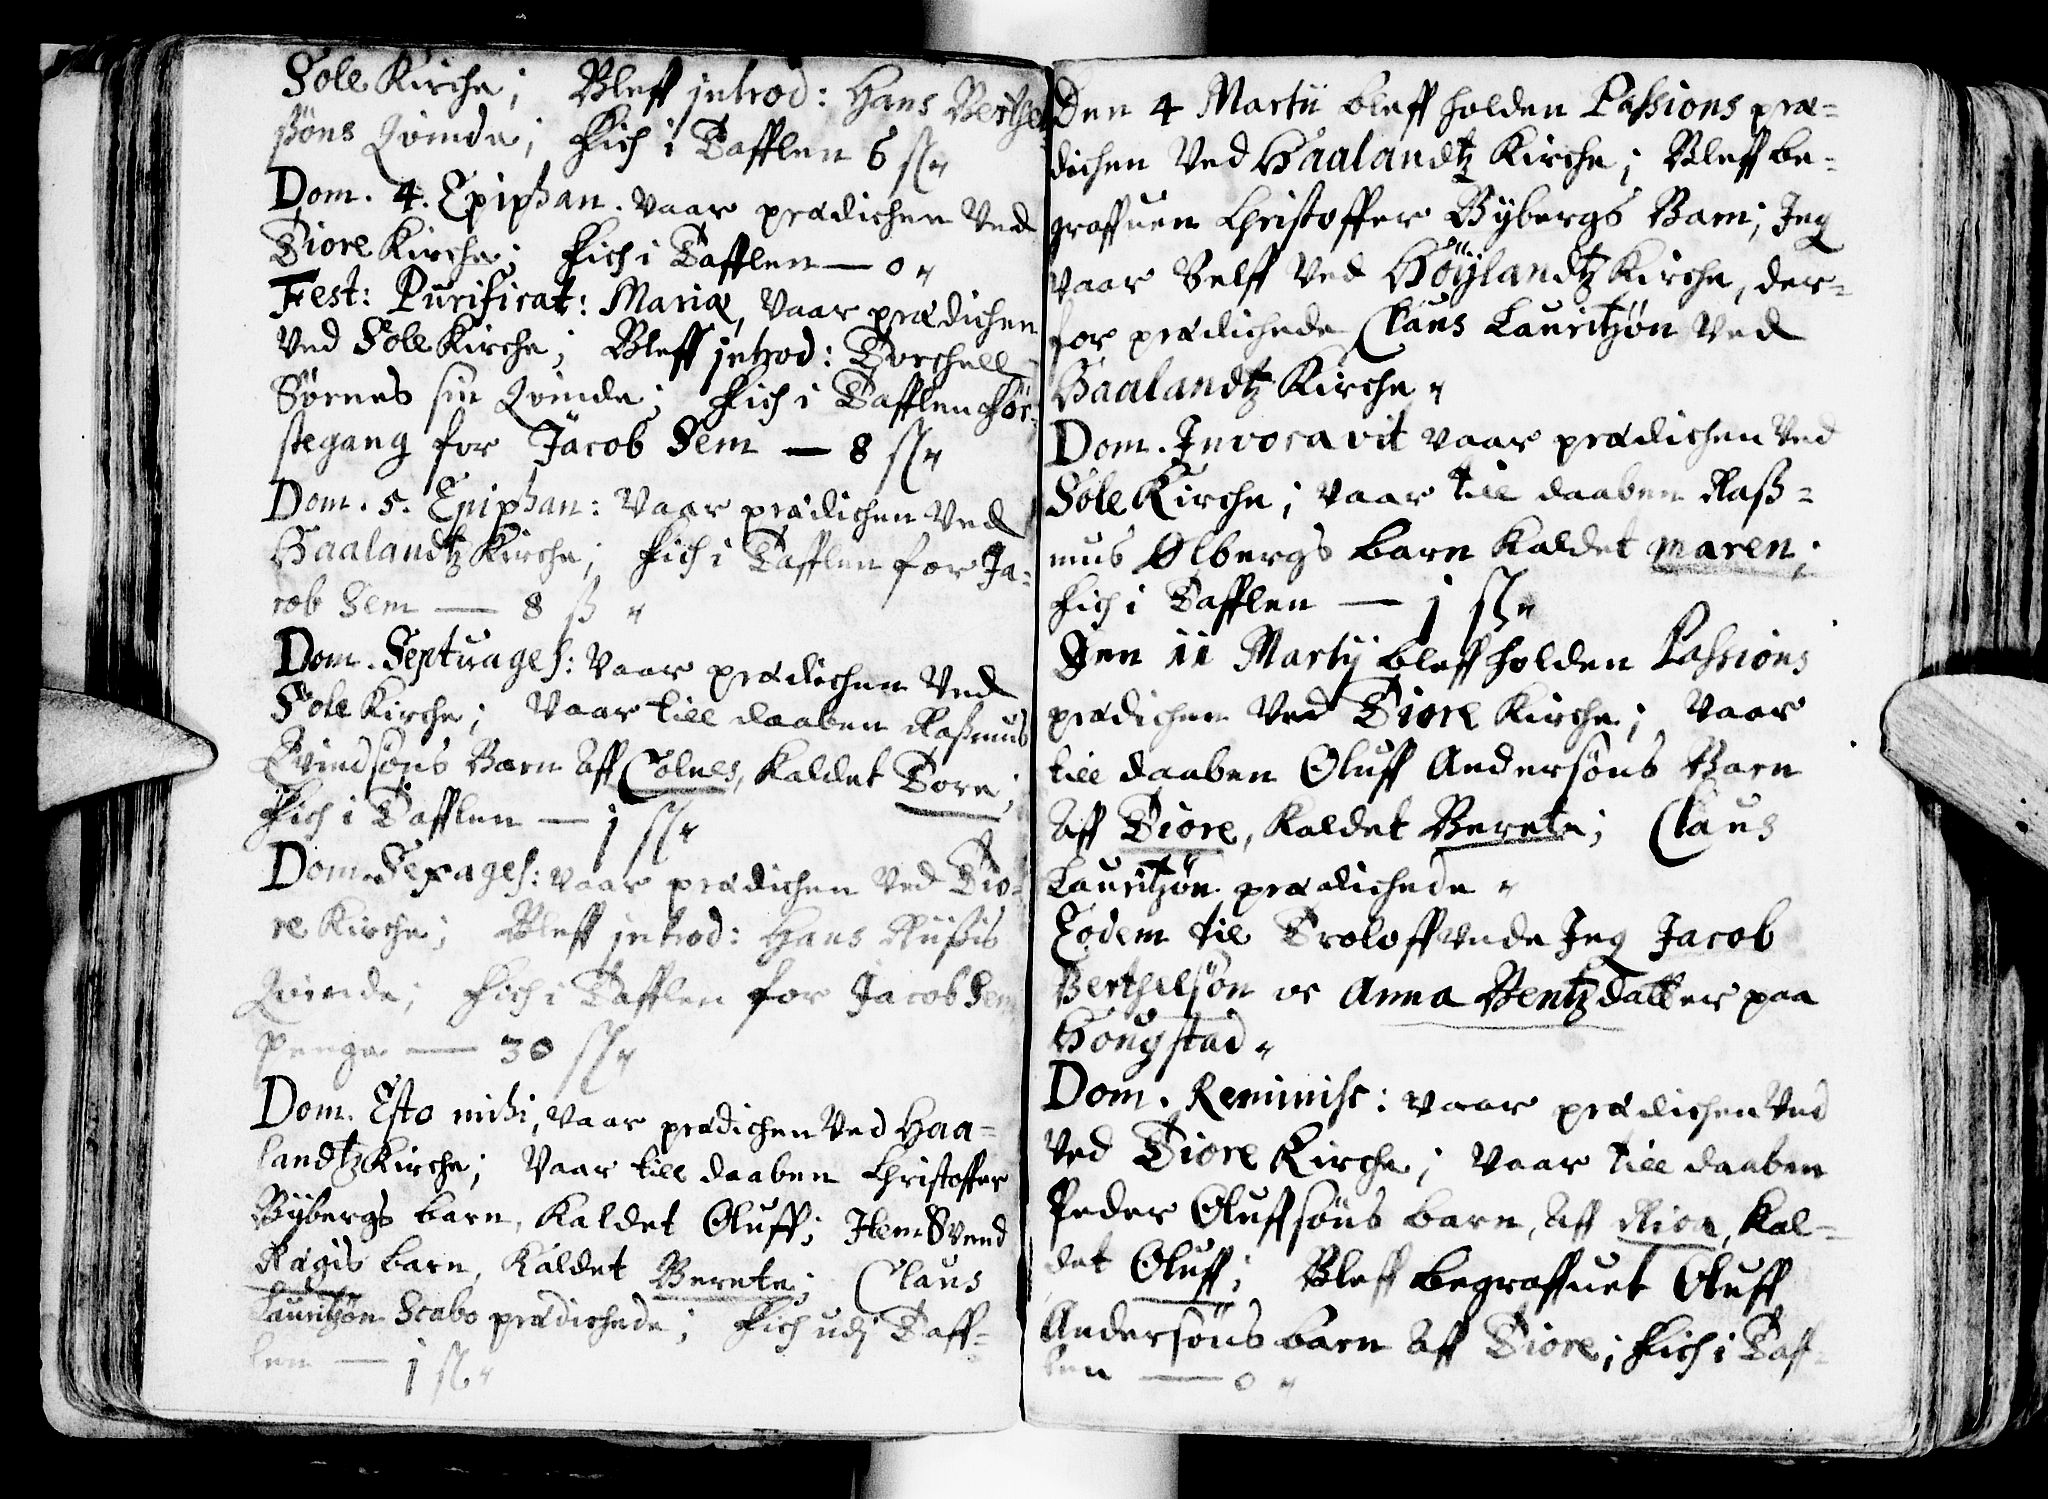 Sole Kirche; Bleff introd: Hans Berthel-
søns Qvinde; Fich i Tafflen 6 sk
Dom. 4. Epiphan. vaar prædichen Ved
Tiore Kirche; Fich i Tafflen — 0
Fest: Purificat: Mariæ, vaar prædichen
ved Sole Kirche; Bleff introd: Torchell
Sørnes sin Qvinde; Fich i Tafflen før-
stegang for Jacob Sem — 8 sk
Dom. 5. Epiphan: vaar prædichen Ved
Haalandtz Kirche; Fich i Tafflen for Ja-
cob Sem — 8 ß
Dom. Septuages: vaar prædichen Ved
Sole Kirche; Vaar till daaben Rasmus
Evindsøns Barn Aff Colnes, kaldet Tore;
Fich i Tafflen — j sk
Dom. Sexages: vaar prædichen ved Tio-
re Kirche; Bleff introd: Hans Riisis
Qvinde; Fich i Tafflen for Jacob Sem
penge — 30 sk
Dom. Esto mihi, vaar prædichen Ved Haa-
landtz Kirche; Vaar till daaben Christoffer
Bÿbergs barn, kaldet Oluff; Item Svend
Rægis barn, kaldet Berete; Claus
Lauritzøn Scabo prædichede; Fich udj Taff-
len — j sk
Den 4 Martii bleff holden Passions præ-
dichen Ved Haalandtz Kirche; Bleff be-
graffuen Christoffer Bÿbergs Barn; Jeg
vaar Self Ved Höÿlandtz Kirche, der-
for prædichede Claus Lauritzøn Ved
Haalandtz Kirche
Dom. Invocavit vaar prædichen Ved
Sole Kirche; vaar till daaben Raß-
mus Ølbergs barn kaldet maren;
Fich i Tafflen — j sk
Den 11 Martij bleff holden Passions
prædichen Ved Tiore Kirche; vaar
till daaben Oluff Andersøns Barn
Aff Tiore, kaldet Berete; Claus
Lauritzøn prædichede
Eodem til Troloffvede Jeg Jacob
Berthelsøn oc Anna Bentzdatter paa
Hougstad
Dom. Reminisc: vaar prædichen Ved
Ved Tiore Kirche; Vaar till daaben
Peder Oluffsøns barn, Aff Riore, kal-
det Oluff; Bleff begraffuet Oluff
Andersøns barn Aff Tiore; Fich i Taf-
len — 0